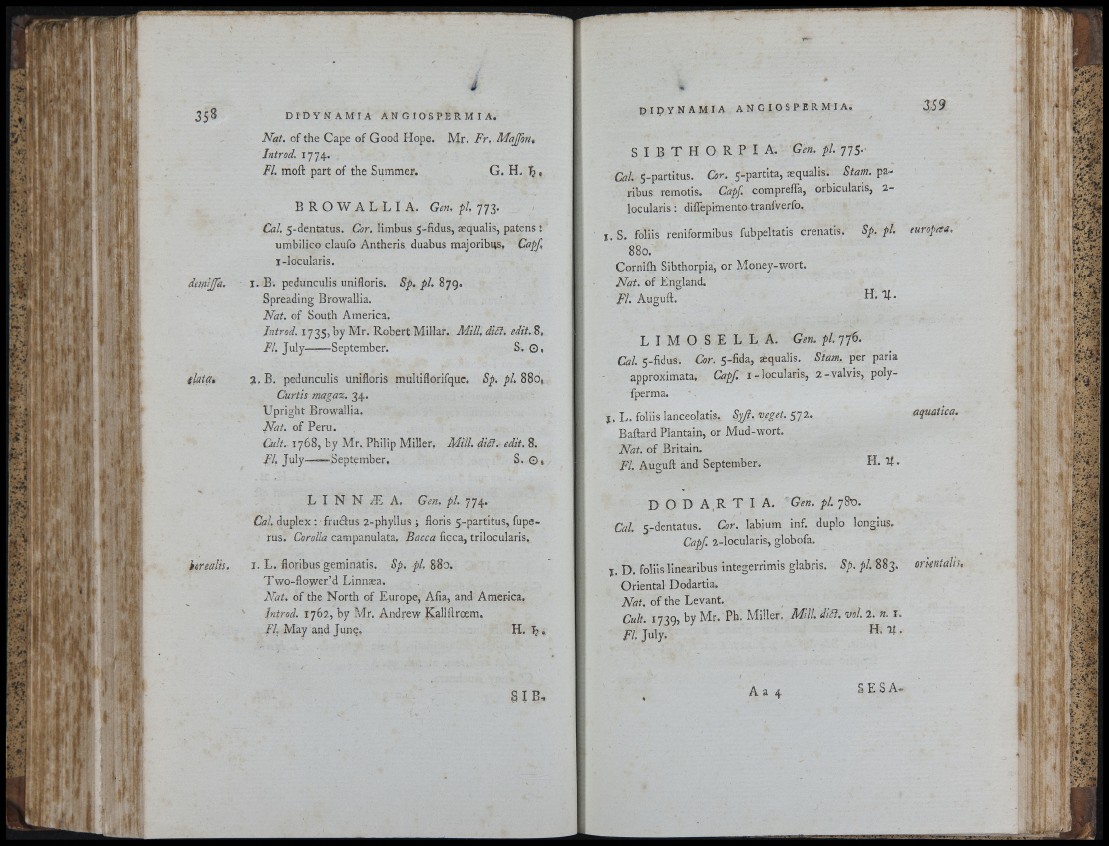 358 DIDYNAMIA ANGIOSPERMIA.
Nat. of the Cape of Good Hope. Mr. Fr. Maſſon.
Introd. 1774.
Fl. moſt part of the Summer. G. H. ♄.
BROWALLIA. Gen. pl. 773.
Cal. 5-dentatus. Cor. limbus 5-fidus, æqualis, patens:
umbilico clauſo Antheris duabus majoribus. Capſ.
1-locularis.
demiſſa. 1. B. pedunculis unifloris. Sp. pl. 879.
Spreading Browallia.
Nat. of South America.
Introd. 1735, by Mr. Robert Millar. Mill. dict. edit. 8.
Fl. July——September. S. ☉.
elata. 2. B. pedunculis unifloris multifloriſque. Sp. pl. 880.
Curtis magaz. 34.
Upright Browallia.
Nat. of Peru.
Cult. 1768, by Mr. Philip Miller. Mill. dict. edit. 8.
Fl. July——September. S. ☉.
LINNÆA. Gen. pl. 774.
Cal. duplex: fructus 2-phyllus; floris 5-partitus, ſupe-
rus. Corolla campanulata. Bacca ſicca, trilocularis.
borealis. 1. L. floribus geminatis. Sp. pl. 880.
Two-flower'd Linnæa.
Nat. of the North of Europe, Aſia, and America.
Introd. 1762, by Mr. Andrew Kallſtrœm.
Fl. May and June. H. ♄.
SIB-
DIDYNAMIA ANGIOSPERMIA. 359
SIBTHORPIA. Gen. pl. 775.
Cal. 5-partitus. Cor. 5-partita, æqualis. Stam. pa-
ribus remotis. Capſ. compreſſa, orbicularis, 2-
locularis: diſſepimento tranſverſo.
1. S. foliis reniformibus ſubpeltatis crenatis. Sp. pl. europæa.
880.
Corniſh Sibthorpia, or Money-wort.
Nat. of England.
Fl. Auguſt. H. ♃.
LIMOSELLA. Gen. pl. 776.
Cal. 5-fidus. Cor. 5-fida, æqualis. Stam. per paria
approximata. Capſ. 1-locularis, 2-valvis, poly-
ſperma.
1. L. foliis lanceolatis. Syſt. veget. 572. aquatica.
Baſtard Plantain, or Mud-wort.
Nat. of Britain.
Fl. Auguſt and September. H. ♃.
DODARTIA. Gen. pl. 780.
Cal. 5-dentatus. Cor. labium inf. duplo longius.
Capſ. 2-locularis, globoſa.
1. D. foliis linearibus integerrimis glabris. Sp. pl. 883. orientalis.
Oriental Dodartia.
Nat. of the Levant.
Cult. 1739, by Mr. Ph. Miller. Mill. dict. vol. 2. n. 1.
Fl. July. H. ♃.
A a 4 SESA-